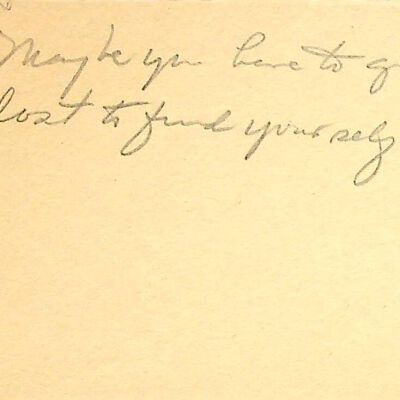 Maybe you have to g
lost to find yourself